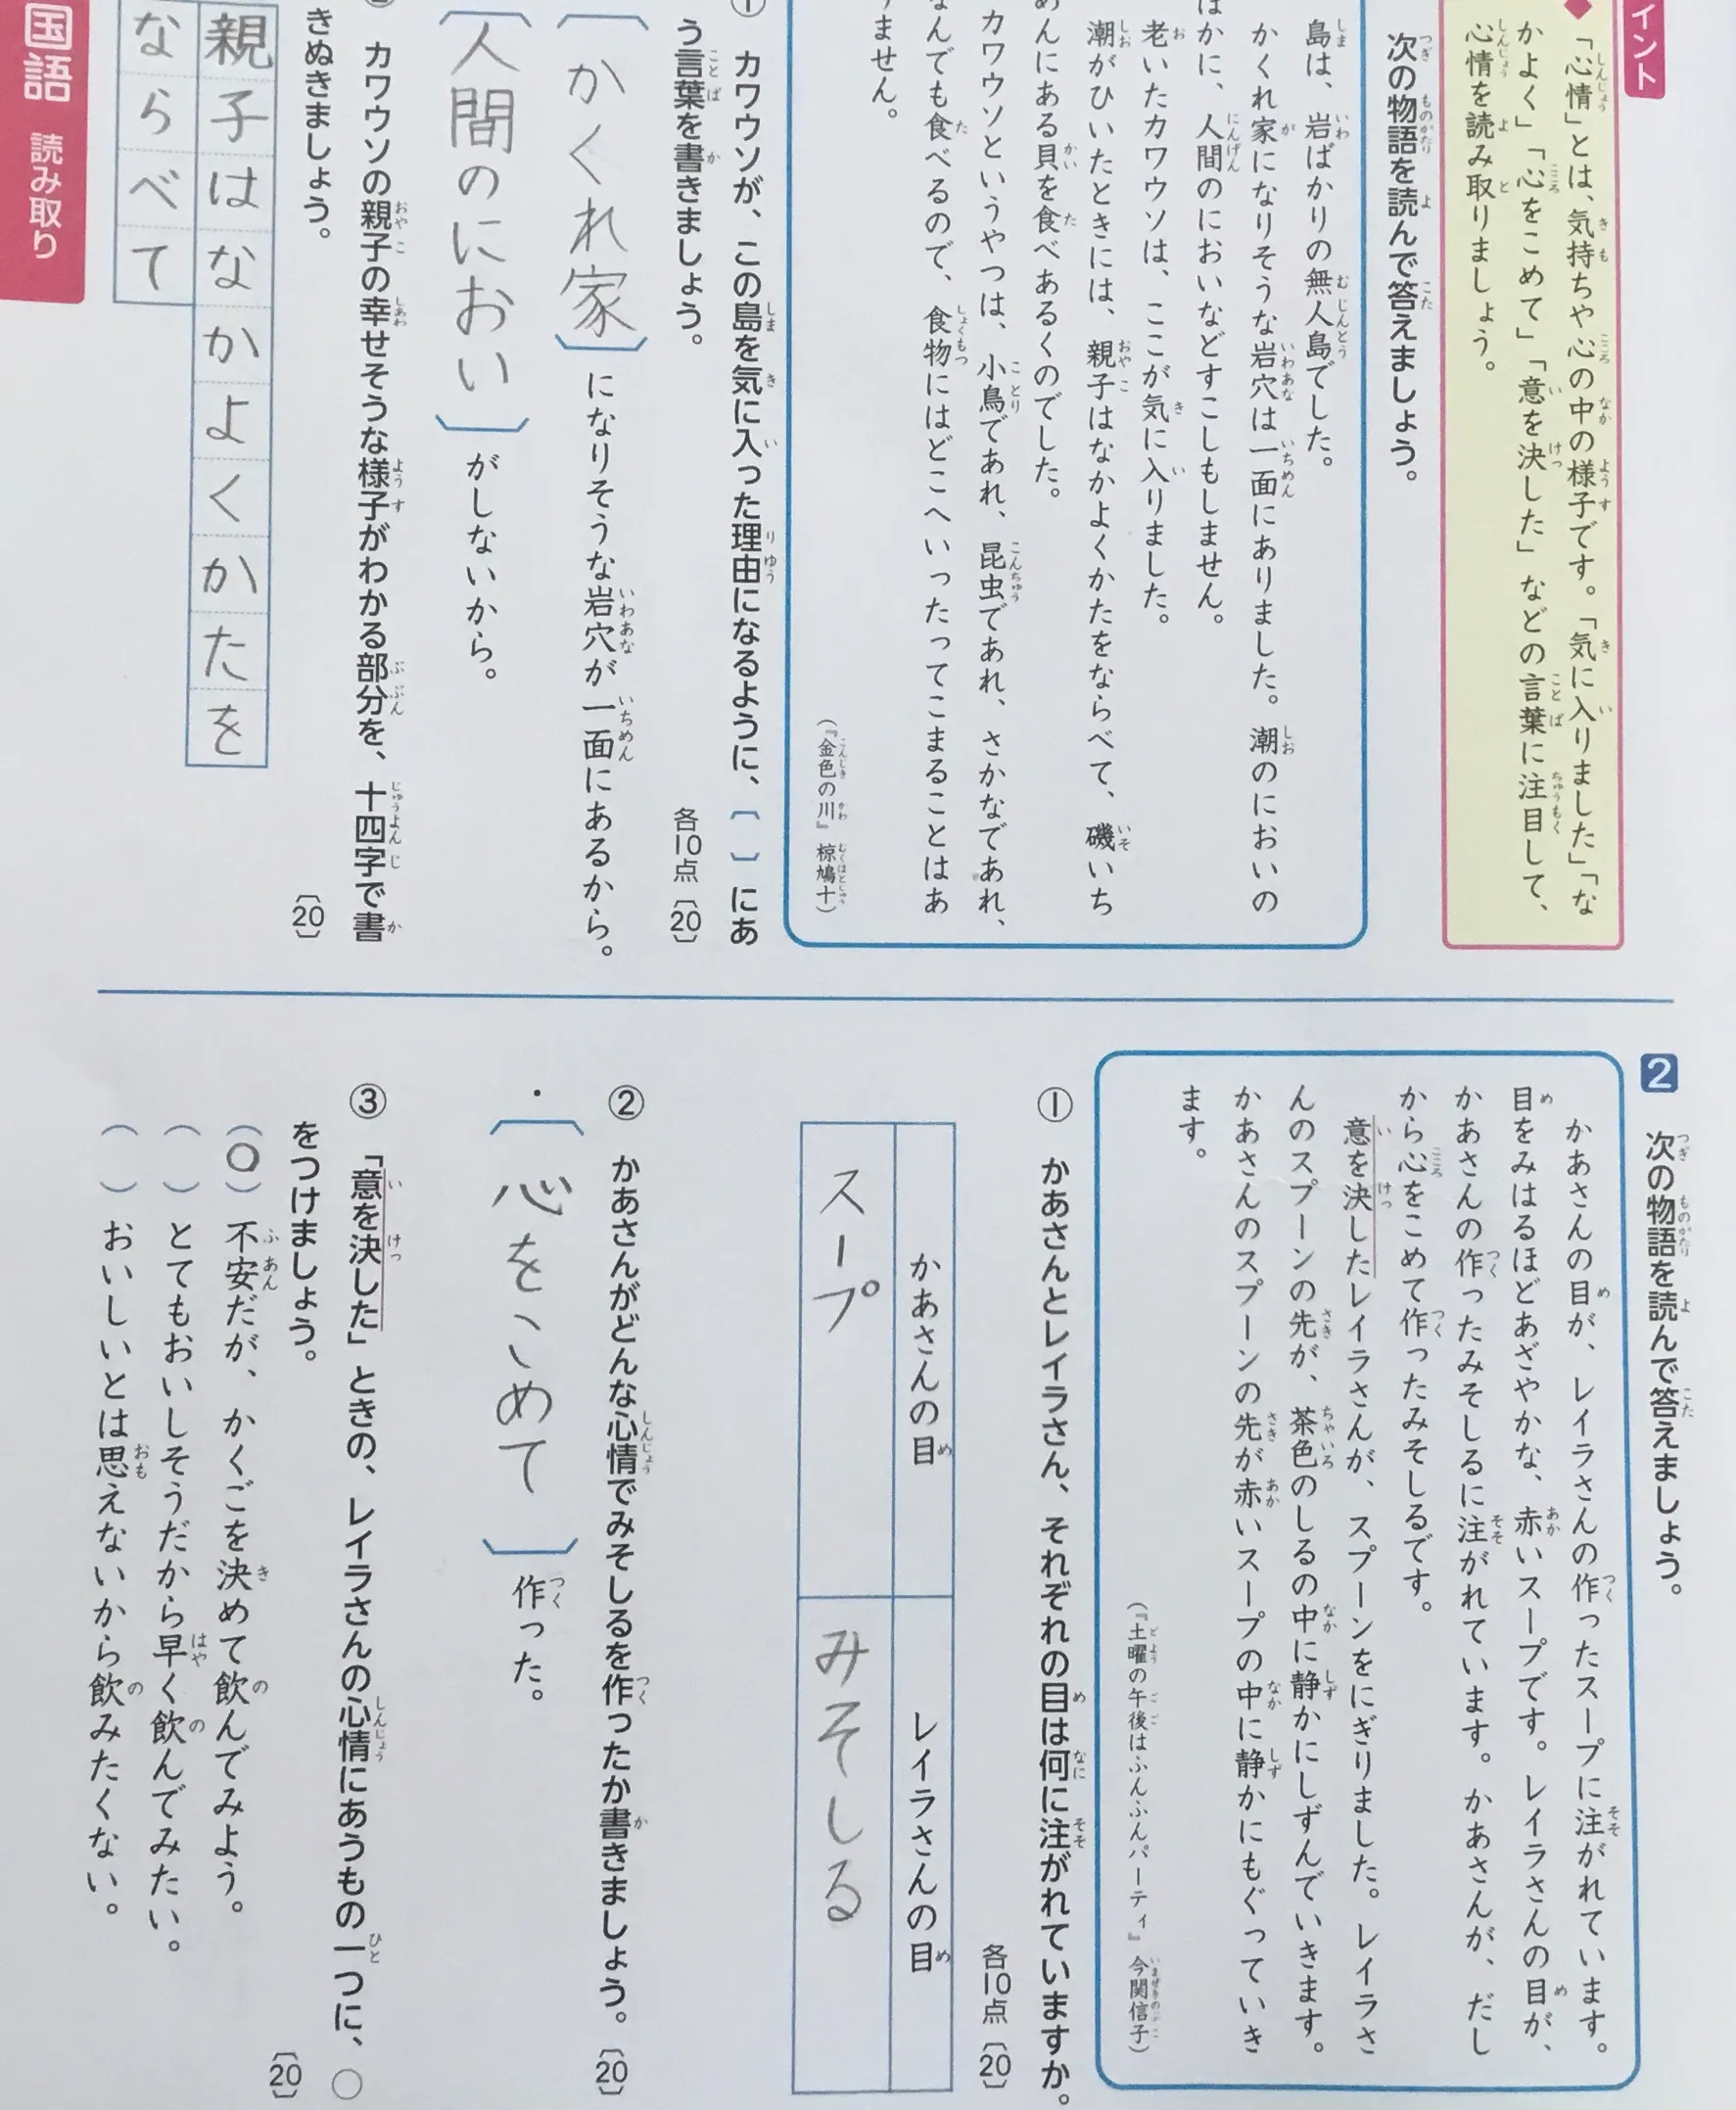 イント
◆「心情」とは、気持ちや心の中の様子です。「気に入りました」「な
かよく」「心をこめて」「意を決した」などの言葉に注目して、
心情を読み取りましょう。
次の物語を読んで答えましょう。
島は、岩ばかりの無人島でした。
かくれ家になりそうな岩穴は一面にありました。潮のにおいの
ほかに、人間のにおいなどすこしもしません。
老いたカワウソは、ここが気に入りました。
潮がひいたときには、親子はなかよくかたをならべて、磯いち
めんにある貝を食べあるくのでした。
カワウソというやつは、小鳥であれ、昆虫であれ、さかなであれ、
なんでも食べるので、食物にはどこへいったってこまることはあ
りません。
(『金色の川』椋鳩十)
① カワウソが、この島を気に入った理由になるように、〔 〕にあ
う言葉を書きましょう。
各10点〔20〕
〔かくれ家〕になりそうな岩穴が一面にあるから。
〔人間のにおい〕がしないから。
② カワウソの親子の幸せそうな様子がわかる部分を、十四字で書
きぬきましょう。
〔20〕
親子はなかよくかたを
ならべて
国語 読み取り
2 次の物語を読んで答えましょう。
かあさんの目が、レイラさんの作ったスープに注がれています。
目をみはるほどあざやかな、赤いスープです。レイラさんの目が、
かあさんの作ったみそしるに注がれています。かあさんが、だし
から心をこめて作ったみそしるです。
意を決したレイラさんが、スプーンをにぎりました。レイラさ
んのスプーンの先が、茶色のしるの中に静かにしずんでいきます。
かあさんのスプーンの先が赤いスープの中に静かにもぐっていき
ます。
(『土曜の午後はふんふんパーティ』今関信子)
① かあさんとレイラさん、それぞれの目は何に注がれていますか。
各10点〔20〕
かあさんの目 レイラさんの目
スープ みそしる
② かあさんがどんな心情でみそしるを作ったか書きましょう。〔20〕
・〔心をこめて〕作った。
③ 「意を決した」ときの、レイラさんの心情にあうもの一つに、○
をつけましょう。
〔20〕
(○)不安だが、かくごを決めて飲んでみよう。
( )とてもおいしそうだから早く飲んでみたい。
( )おいしいとは思えないから飲みたくない。